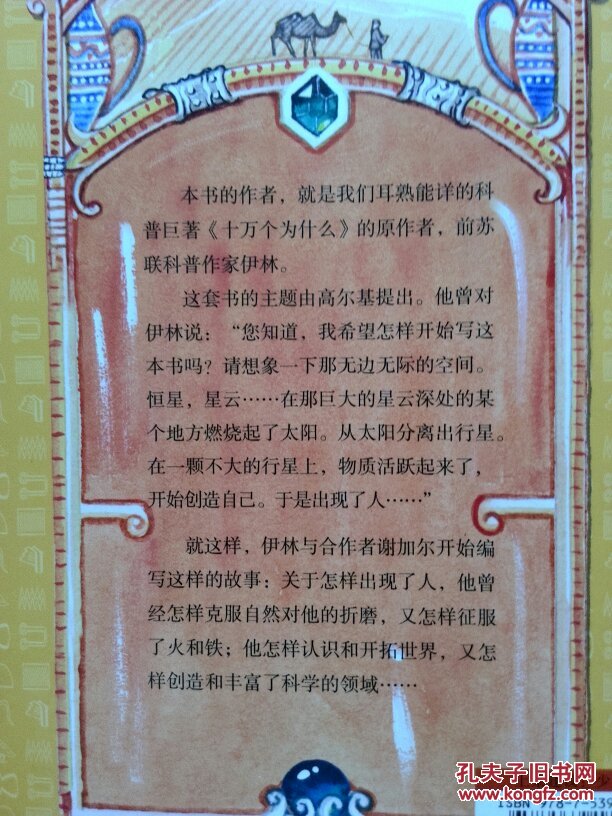 本书的作者，就是我们耳熟能详的科
普巨著《十万个为什么》的原作者，前苏
联科普作家伊林。
这套书的主题由高尔基提出。他曾对
伊林说：“您知道，我希望怎样开始写这
本书吗？请想象一下那无边无际的空间。
恒星，星云……在那巨大的星云深处的某
个地方燃烧起了太阳。从太阳分离出行星。
在一颗不大的行星上，物质活跃起来了，
开始创造自己。于是出现了人……”
就这样，伊林与合作者谢加尔开始编
写这样的故事：关于怎样出现了人，他曾
经怎样克服自然对他的折磨，又怎样征服
了火和铁；他怎样认识和开拓世界，又怎
样创造和丰富了科学的领域……
孔夫子旧书网
www.kongfz.com
ISBN 978-7-539